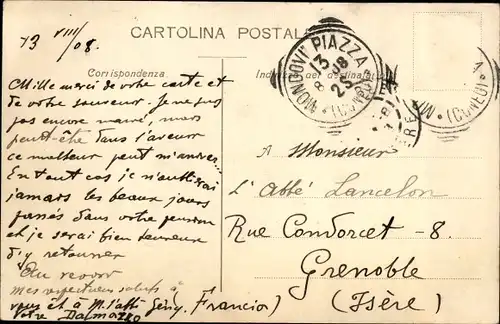 CARTOLINA POSTALE
13 VIII/08.
Corrispondenza
MONDOVI' PIAZZA
(CUNEO)
3
8 08
Mille merci de votre carte et
de votre souvenir. Je ne suis
pas encore marié, mais
peut-être dans l'avenir
ce malheur peut m'arriver...
En tout cas je n'oublierai
jamais les beaux jours
passés dans votre pension
et je serai bien heureux
d'y retourner
Au revoir
mes respectueux saluts à
vous et à M. l'abbé
Votre Dalmazzo
A Monsieur
L'Abbé Lancelon
Rue Condorcet - 8.
Grenoble
(Isère)
Francia)